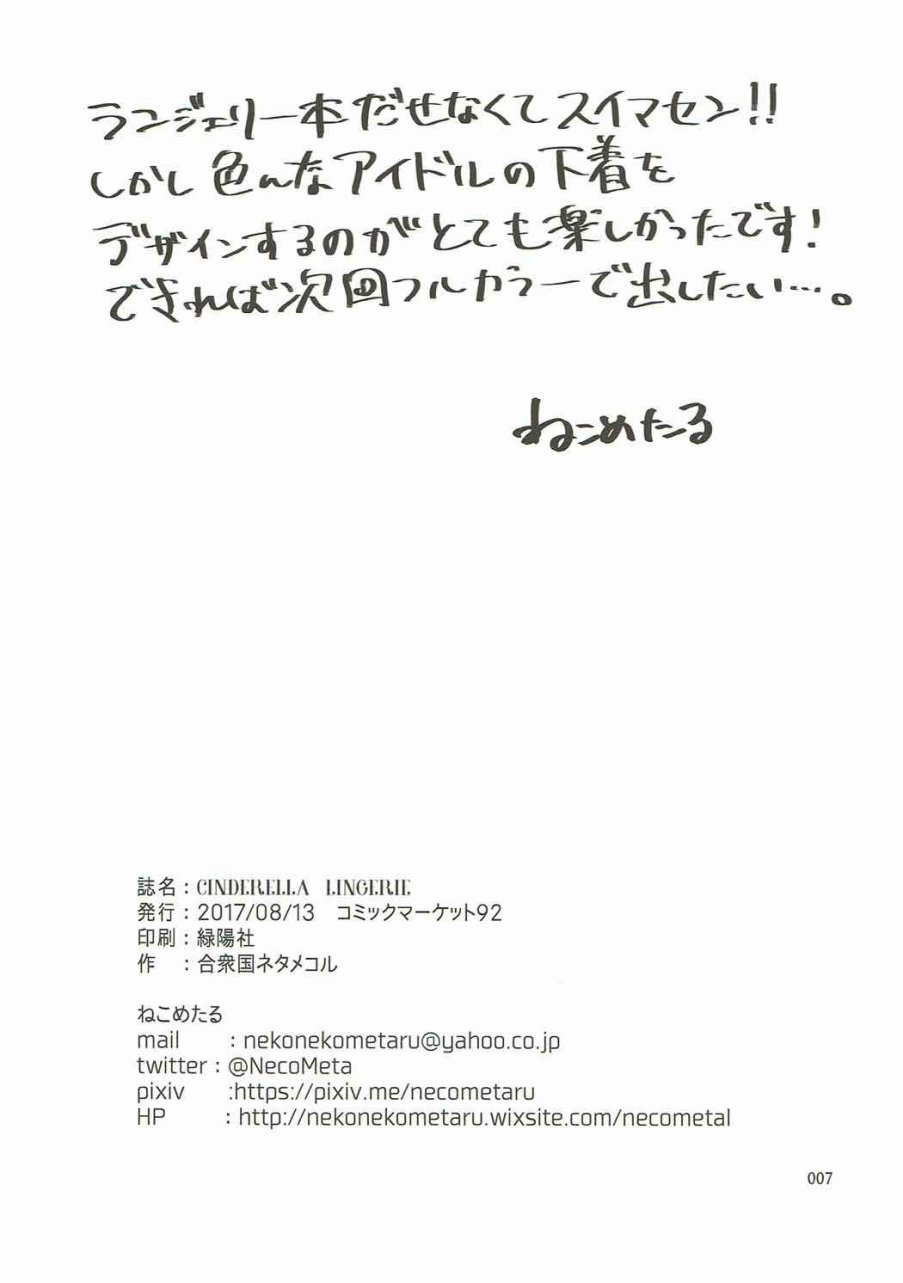 ランジェリー本だせなくてスイマセン!!
しかし色んなアイドルの下着を
デザインするのがとても楽しかったです!
できれば次回フルカラーで出したい…。
ねこめたる
誌名:CINDERELLA LINGERIE
発行:2017/08/13 コミックマーケット92
印刷:緑陽社
作 :合衆国ネタメコル
ねこめたる
mail : nekonekometaru@yahoo.co.jp
twitter : @NecoMeta
pixiv :https://pixiv.me/necometaru
HP : http://nekonekometaru.wixsite.com/necometal
007